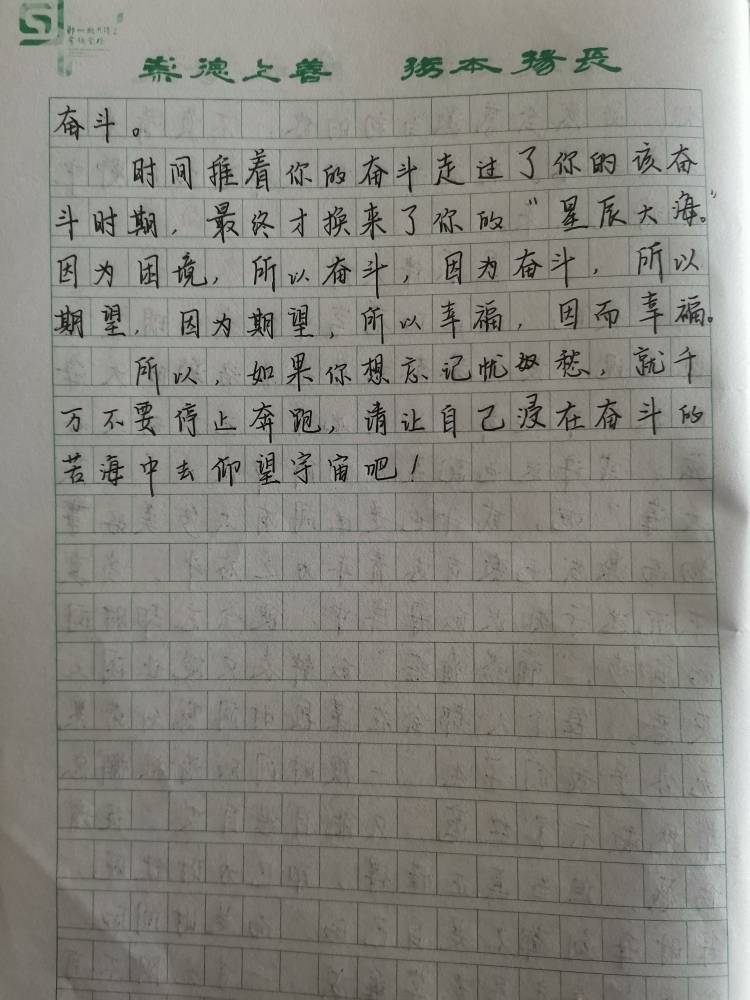 崇德上善 强本扬长
奋斗。
时间推着你的奋斗走过了你的该奋
斗时期，最终才换来了你的“星辰大海。”
因为困境，所以奋斗，因为奋斗，所以
期望，因为期望，所以幸福，因而幸福。
所以，如果你想忘记忧愁，就千
万不要停止奔跑，请让自己浸在奋斗的
苦海中去仰望宇宙吧！